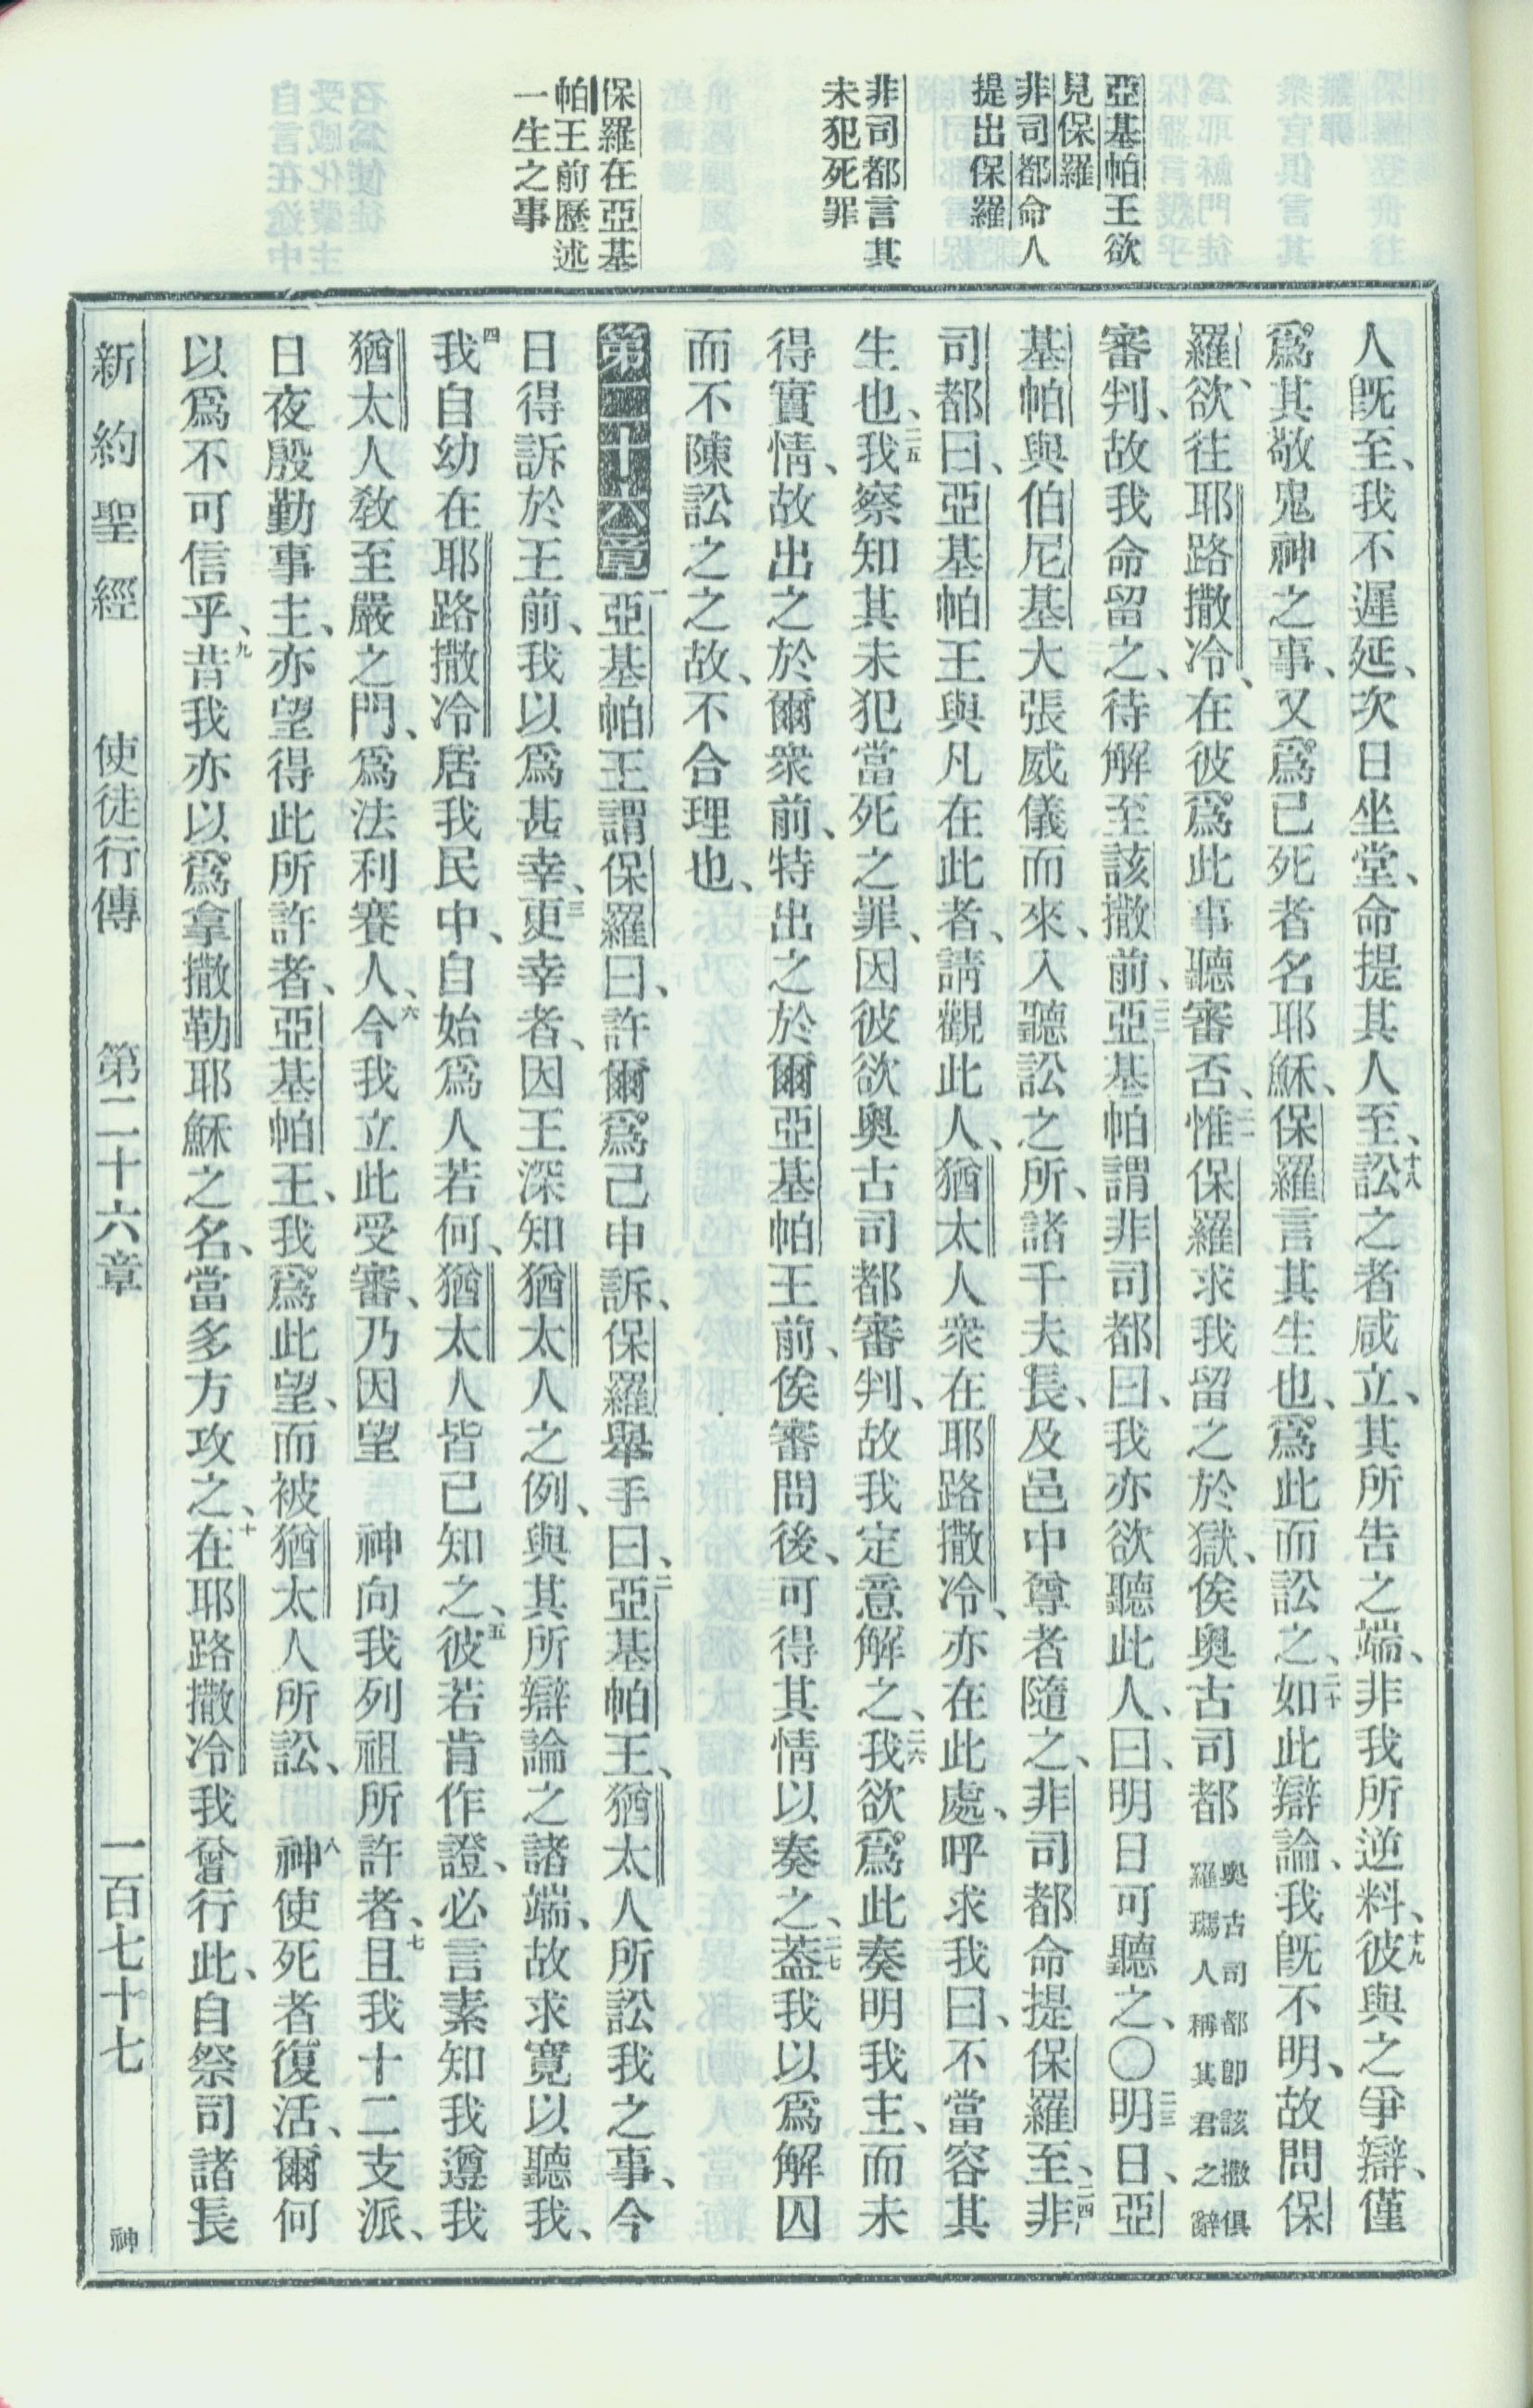 亞基帕王欲
見保羅
非司都命人
提出保羅
非司都言其
未犯死罪
保羅在亞基
帕王前歷述
一生之事
人旣至、我不遲延、次日坐堂、命提其人至、十八訟之者咸立、其所告之端、非我所逆料、十九彼與之爭辯、僅
爲其敬鬼神之事、又爲已死者名耶穌、保羅言其生也、爲此而訟之、二十如此辯論、我旣不明、故問保
羅、欲往耶路撒冷、在彼爲此事聽審否、二一惟保羅求我留之於獄、俟奧古司都奧古司都卽該撒俱羅瑪人稱其君之辭
審判、故我命留之、待解至該撒前、二二亞基帕謂非司都曰、我亦欲聽此人、曰、明日可聽之、〇二三明日、亞
基帕與伯尼基大張威儀而來、入聽訟之所、諸千夫長、及邑中尊者隨之、非司都命提保羅至、二四非
司都曰、亞基帕王與凡在此者、請觀此人、猶太人衆在耶路撒冷、亦在此處、呼求我曰、不當容其
生也、二五我察知其未犯當死之罪、因彼欲奧古司都審判、故我定意解之、二六我欲爲此奏明我主、而未
得實情、故出之於爾衆前、特出之於爾亞基帕王前、俟審問後、可得其情以奏之、二七蓋我以爲解囚
而不陳訟之之故、不合理也、
第二十六章一亞基帕王謂保羅曰、許爾爲己申訴、保羅舉手曰、二亞基帕王、猶太人所訟我之事、今
日得訴於王前、我以爲甚幸、三更幸者、因王深知猶太人之例、與其所辯論之諸端、故求寬以聽我、
四我自幼在耶路撒冷居我民中、自始爲人若何、猶太人皆已知之、五彼若肯作證、必言素知我遵我
猶太人敎至嚴之門、爲法利賽人、六今我立此受審、乃因望 神向我列祖所許者、七且我十二支派、
日夜殷勤事主、亦望得此所許者、亞基帕王、我爲此望、而被猶太人所訟、八神使死者復活、爾何
以爲不可信乎、九昔我亦以爲拿撒勒耶穌之名、當多方攻之、十在耶路撒冷我曾行此、自祭司諸長
新約聖經 使徒行傳 第二十六章 一百七十七 神